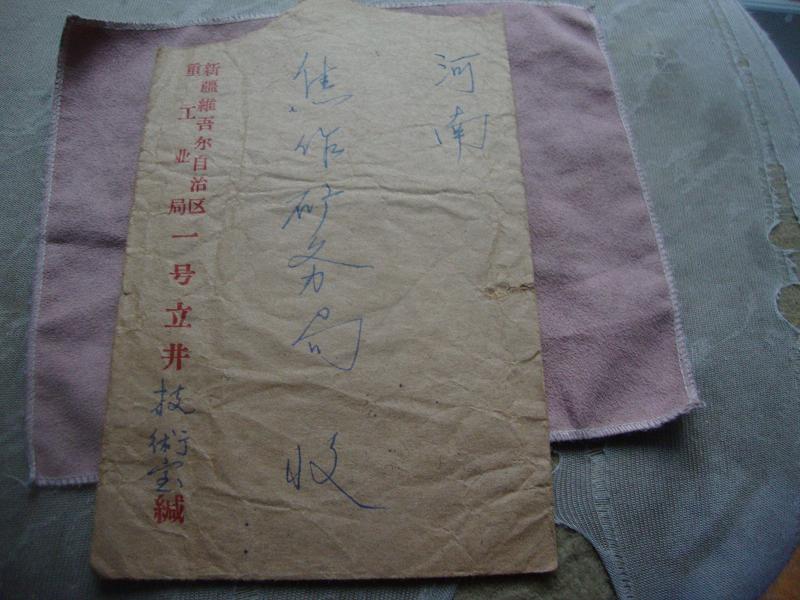 河南
焦作矿务局 收
新疆維吾尔自治区
重工业局
一号立井
技術室
缄